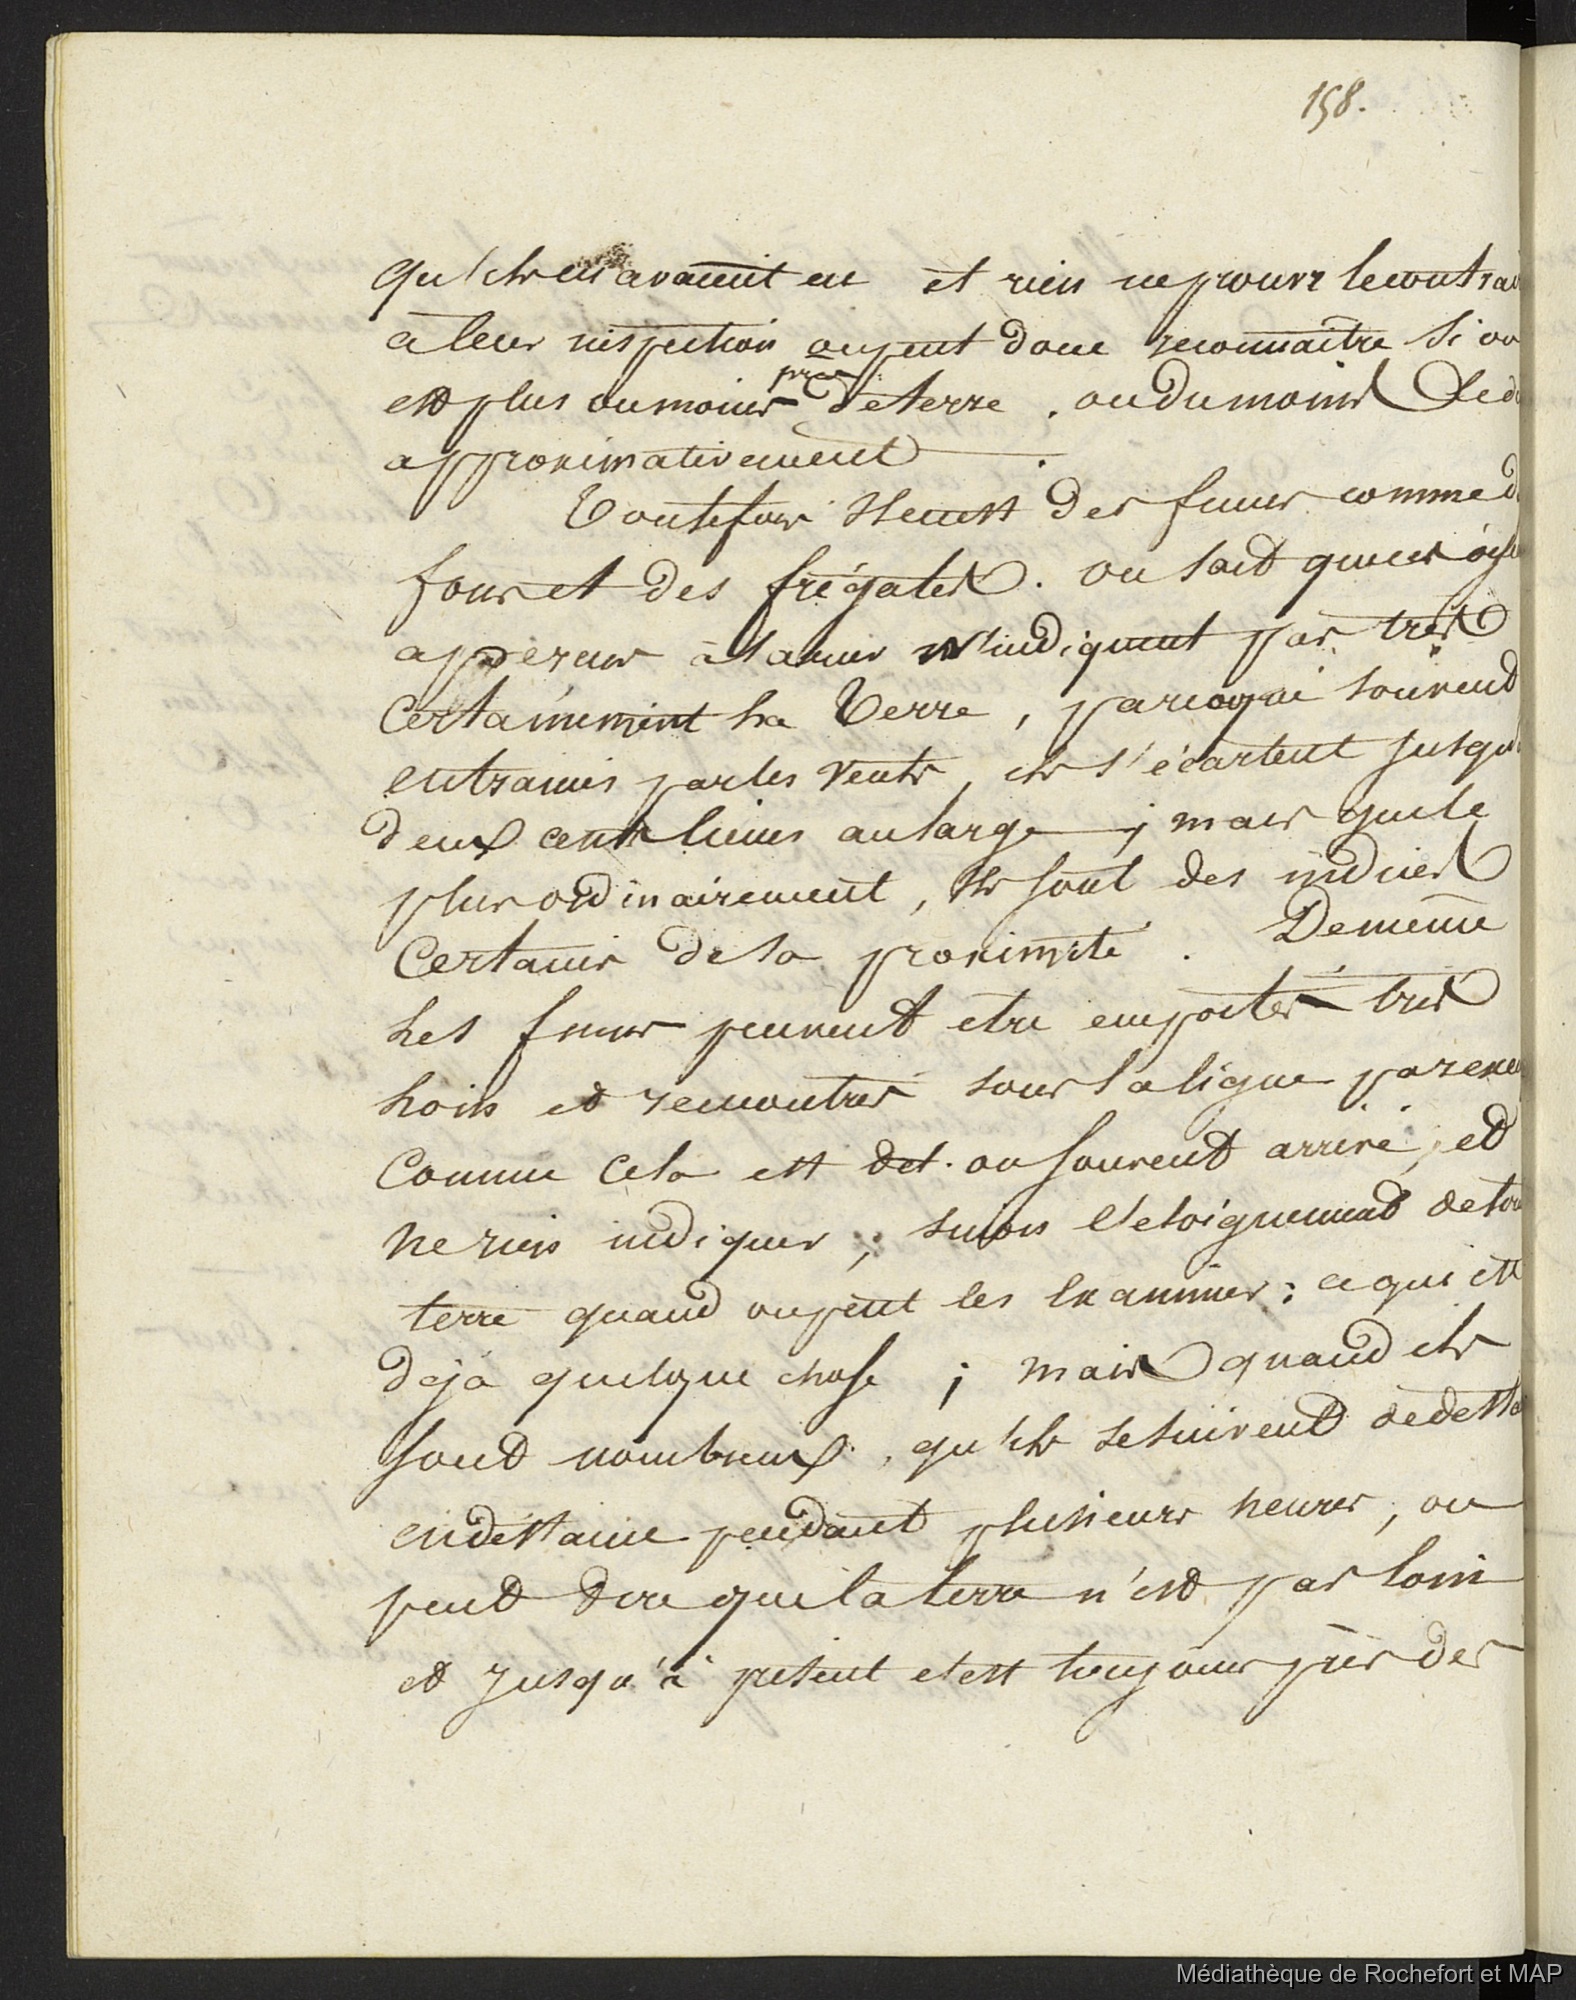 158.
qu'ils en avaient eu et rien ne prouve le contrai
à leur inspection on peut donc reconnaitre si on
est plus ou moins près de terre, ou du moins le d
approximativement.
Toutefois il en est des fucus comme d
fous et des frégates. On sait que ces ois
apperçus à la mer n'indiquent pas très
certainement la Terre, parceque souvent
entrainés par les vents, ils s'écartent jusqu'
deux cents lieues au large; mais que le
plus ordinairement, ils sont des indices
certains de sa proximité. De même
les fucus peuvent etre emportés très
loin et rencontrés sous la ligne par exe
comme cela est souvent arrivé, et
ne rien indiquer, sinon l'eloignement de tou
terre quand on peut les examiner: ce qui est
déjà quelque chose; mais quand ils
sont nombreux, qu'ils se suivent de dista
en distance pendant plusieurs heures, on
peut dire que la terre n'est pas loin
et jusqu'à présent c'est toujours près des
Médiathèque de Rochefort et MAP